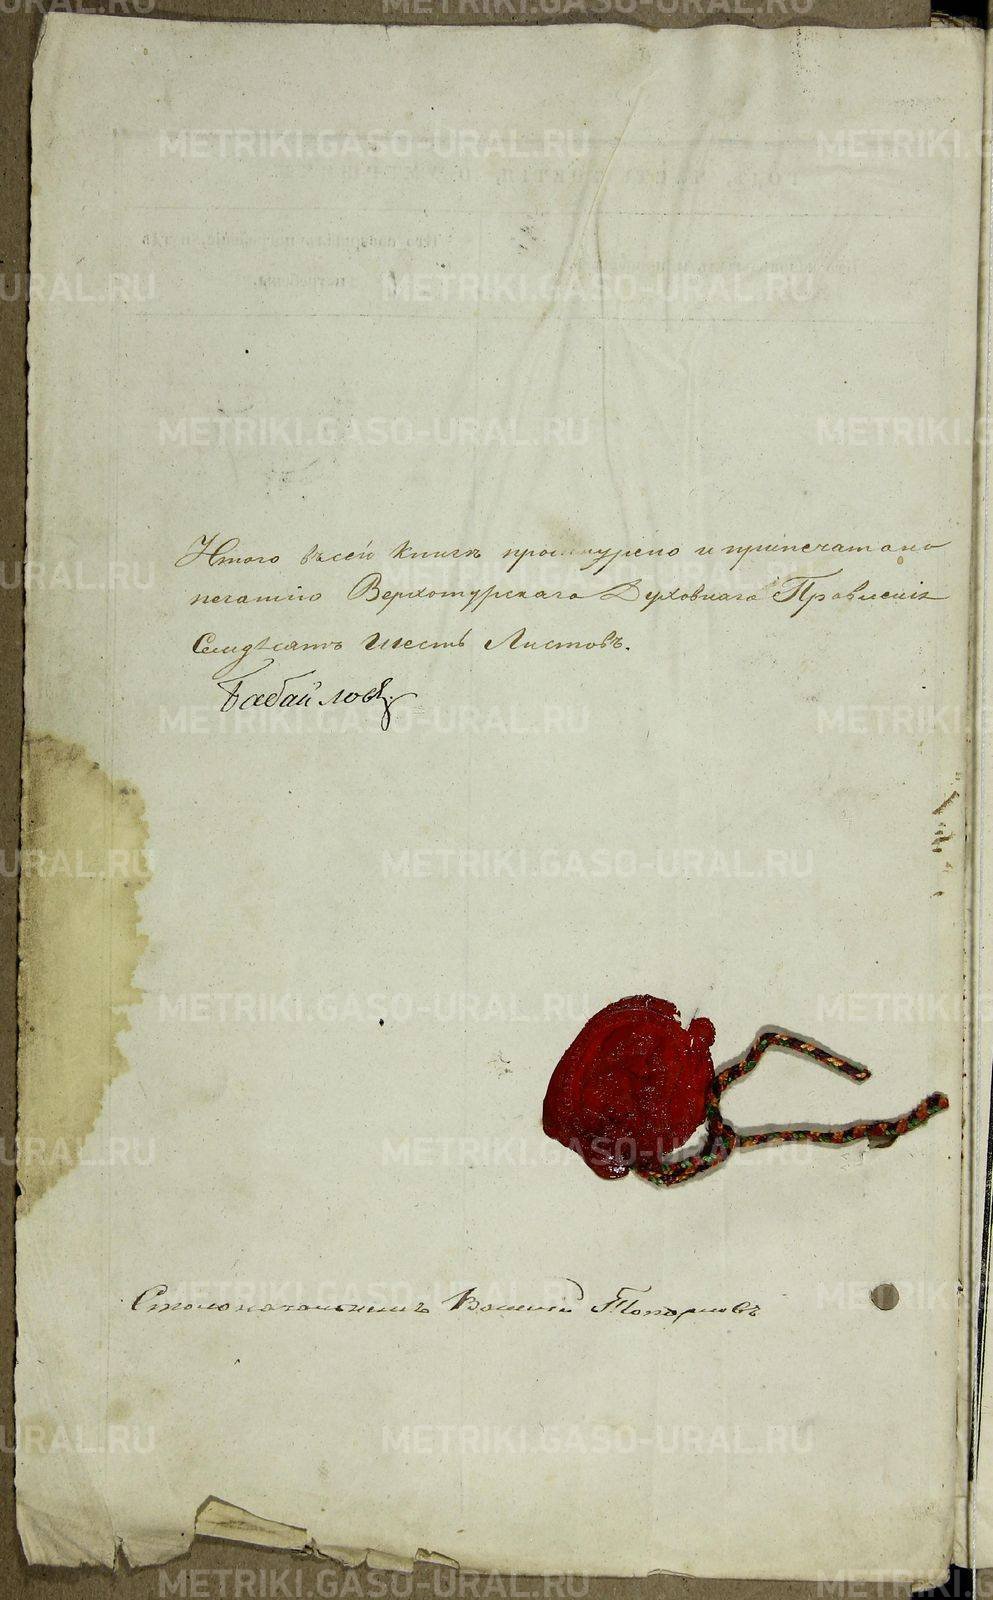 Итого въ сей Книгѣ прошнурено и припечатано
печатію Верхотурскаго Духовнаго Правленія
Семдѣсятъ шесть Листовъ.
Бабайловъ
Столоначальникъ Василій Топорковъ
METRIKI.GASO-URAL.RU